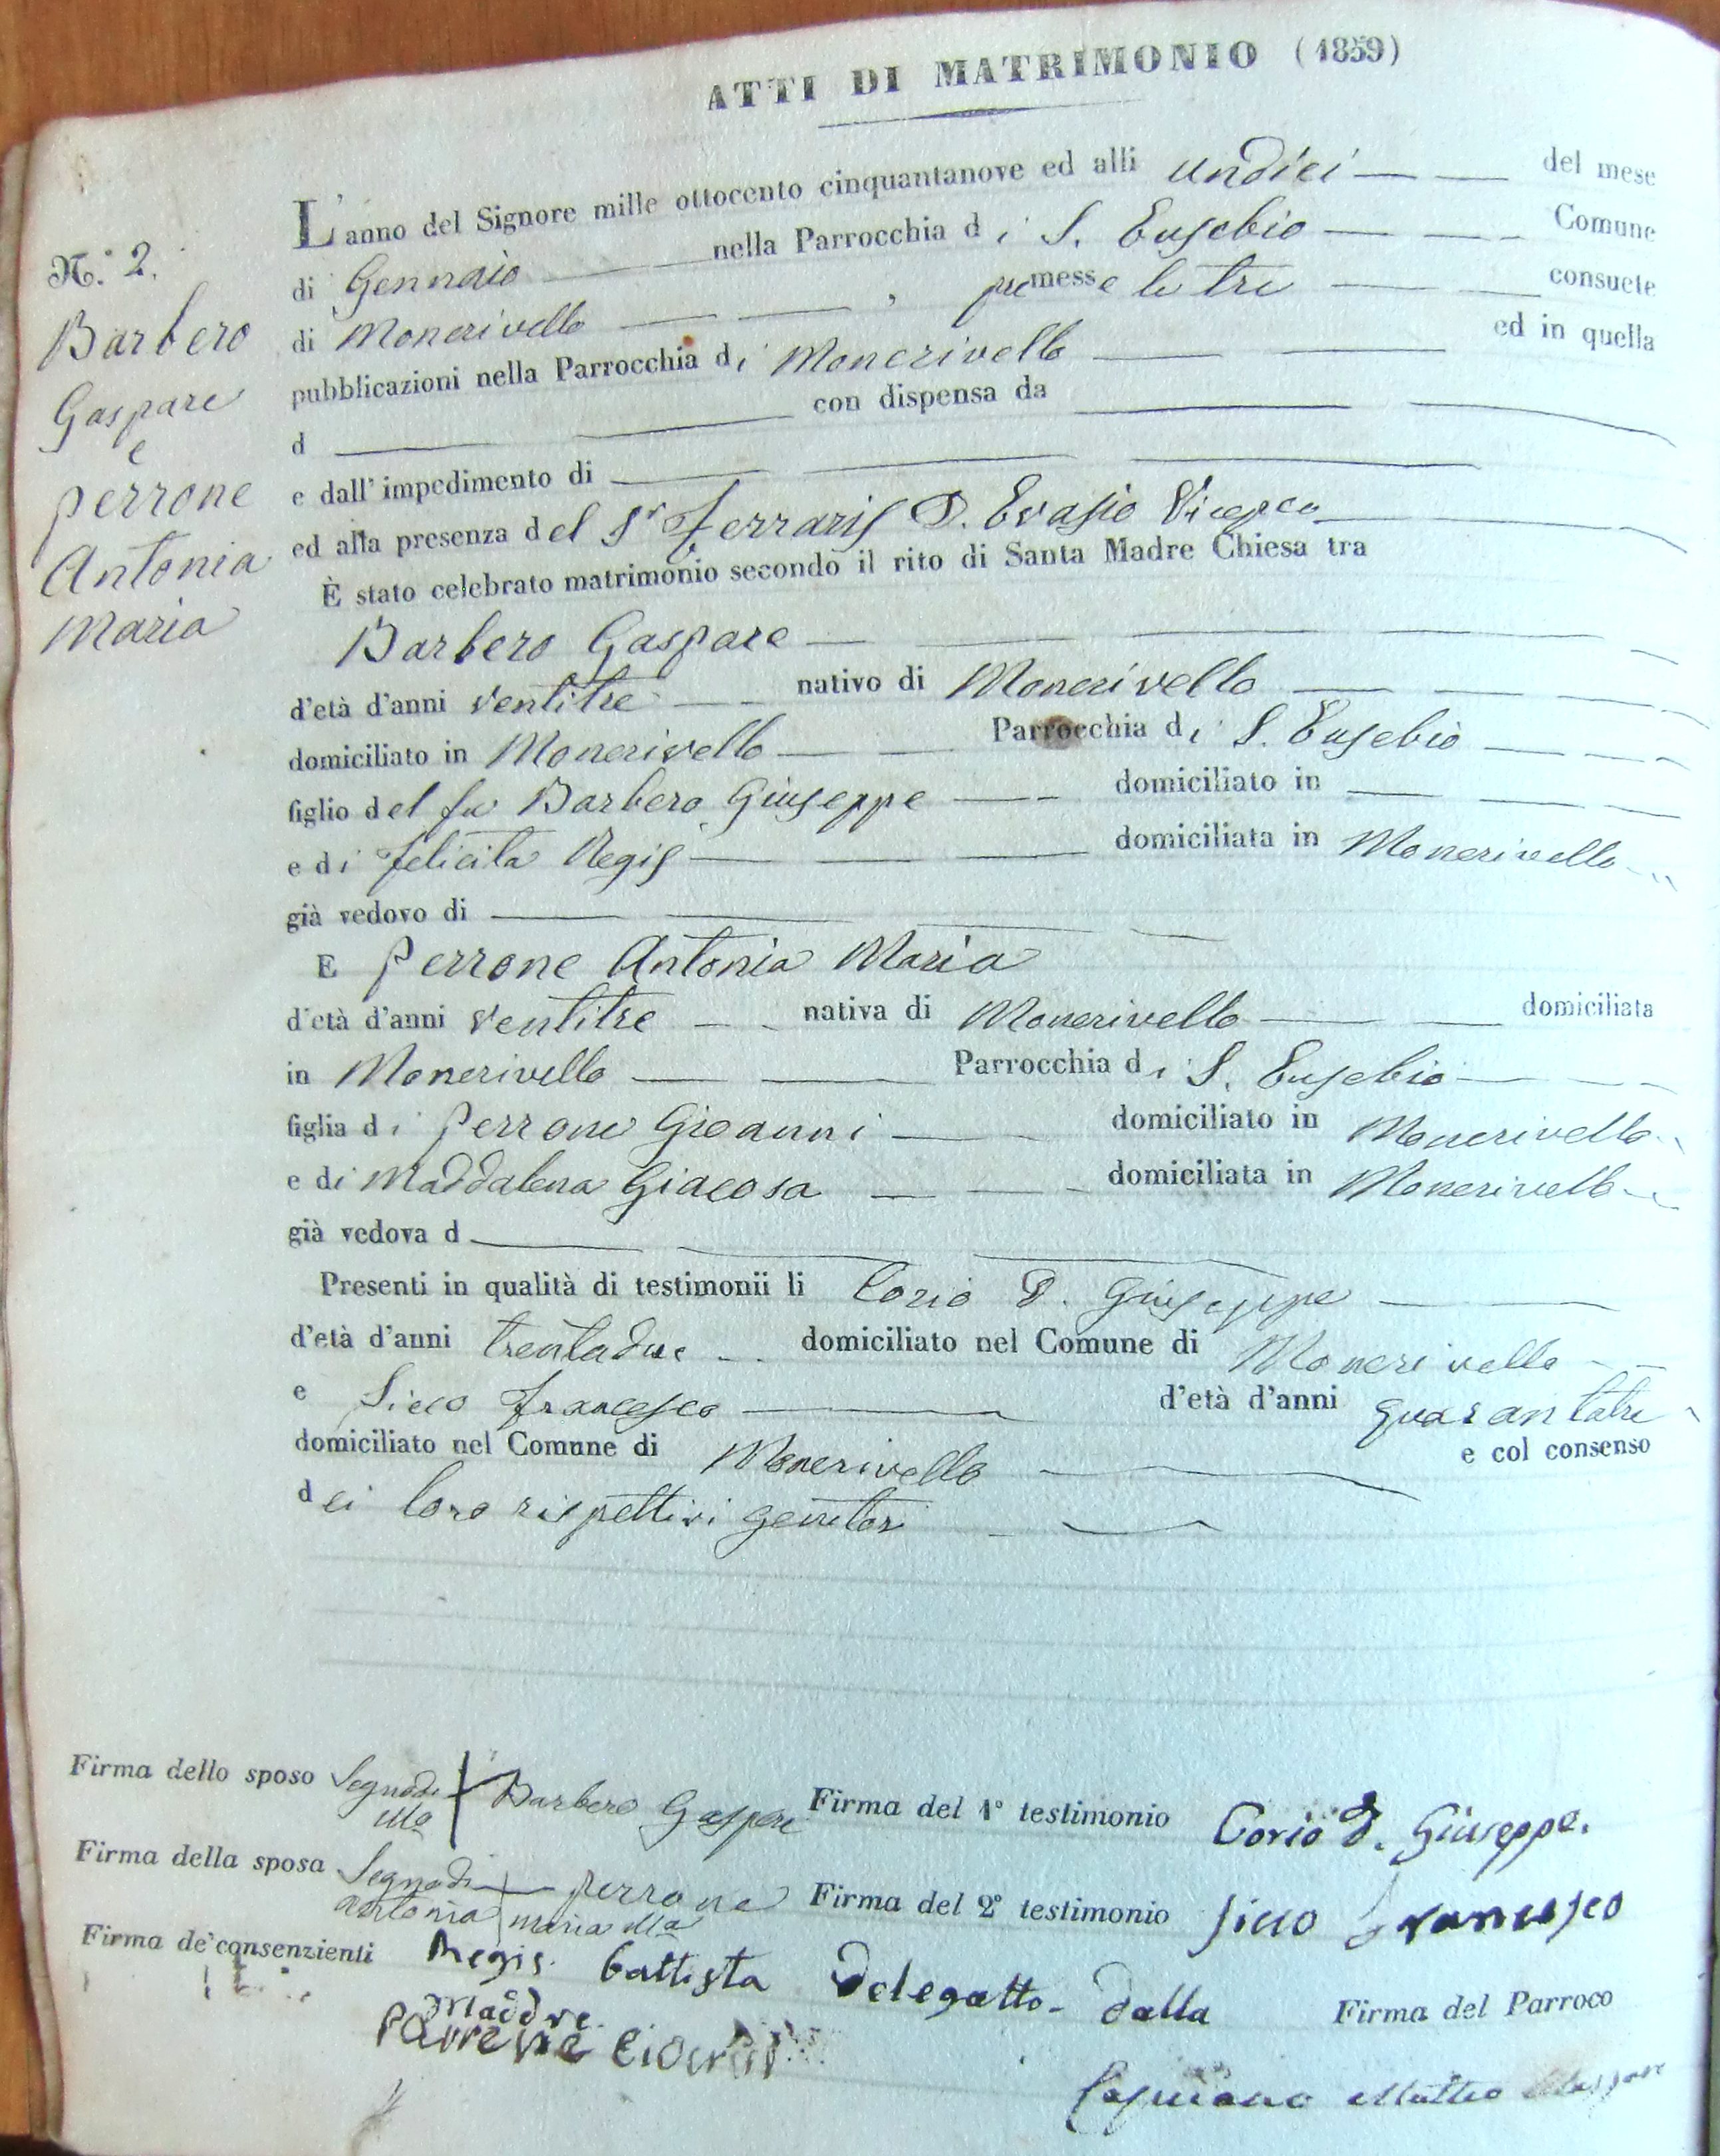 ATTI DI MATRIMONIO (1859)
N.° 2.
Barbero
Gaspare
e
Perrone
Antonia
Maria
L'anno del Signore mille ottocento cinquantanove ed alli undici del mese
di Gennaio nella Parrocchia di S. Eusebio Comune
di Moncrivello, premesse le tre consuete
pubblicazioni nella Parrocchia di Moncrivello ed in quella
d con dispensa da
e dall'impedimento di
ed alla presenza del Sr Ferraris D. Evasio
È stato celebrato matrimonio secondo il rito di Santa Madre Chiesa tra
Barbero Gaspare
d'età d'anni ventitre nativo di Moncrivello
domiciliato in Moncrivello Parrocchia di S. Eusebio
figlio del fu Barbero Giuseppe domiciliato in
e di Felicita Regis domiciliata in Moncrivello
già vedovo di
E Perrone Antonia Maria
d'età d'anni ventitre nativa di Moncrivello domiciliata
in Moncrivello Parrocchia di S. Eusebio
figlia di Perrone Gioanni domiciliato in Moncrivello
e di Maddalena Giacosa domiciliata in Moncrivello
già vedova d
Presenti in qualità di testimonii li Corio D. Giuseppe
d'età d'anni trentadue domiciliato nel Comune di Moncrivello
e Sicco Francesco d'età d'anni quarantatre
domiciliato nel Comune di Moncrivello e col consenso
dei loro rispettivi genitori
Firma dello sposo Segno di Barbero Gaspare
Firma del 1° testimonio Corio D. Giuseppe.
Firma della sposa Segno di Perrone
Antonia Maria
Firma del 2° testimonio Sicco Francesco
Firma de' consenzienti Regis Battista Delegatto dalla
Maddre
Firma del Parroco
Matteo